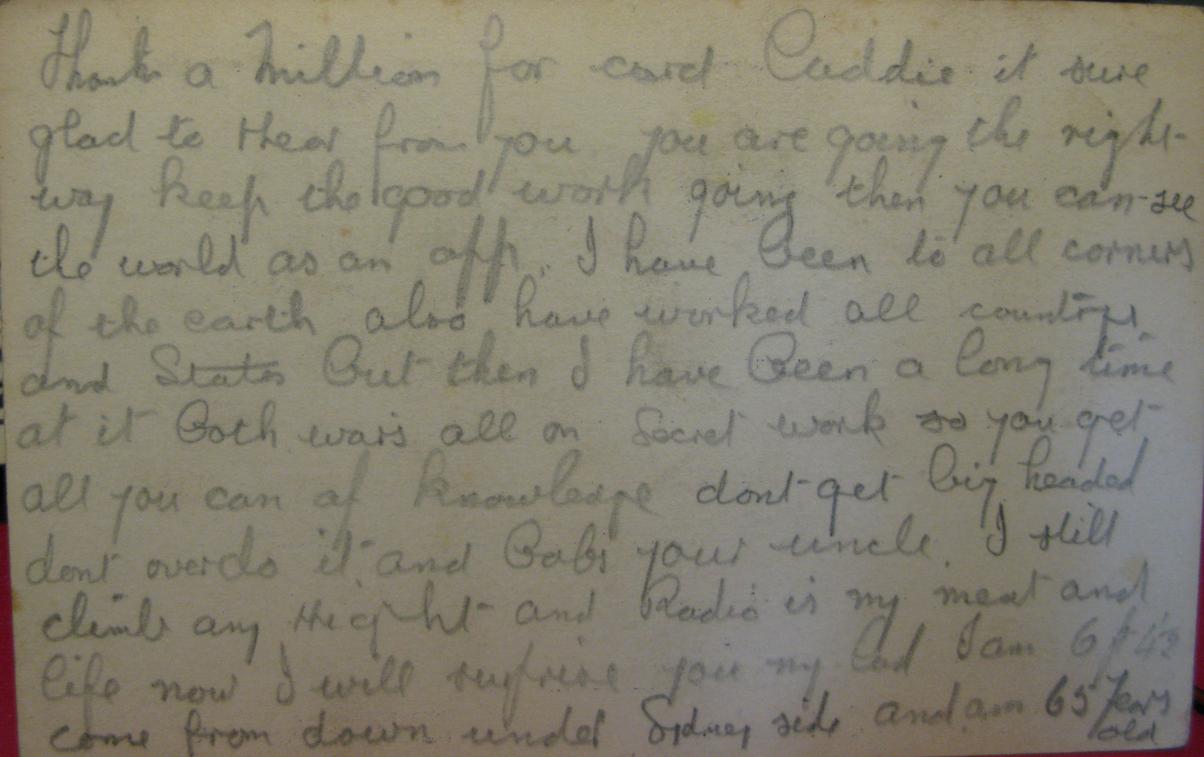 Thanks a Million for card Caddie it sure
glad to Hear from you you are going the right
way keep the good work going then you can see
the world as an opp. I have Been to all corners
of the earth also have worked all countrys
and States But then I have Been a long time
at it Both wars all on Secret work so you get
all you can of knowledge dont get big headed
dont overdo it and Bobs your uncle. I still
climb any Height and Radio is my meat and
life now I will surprise you my lad I am 6ft 4½
come from down under Sydney side and am 65 Years
old